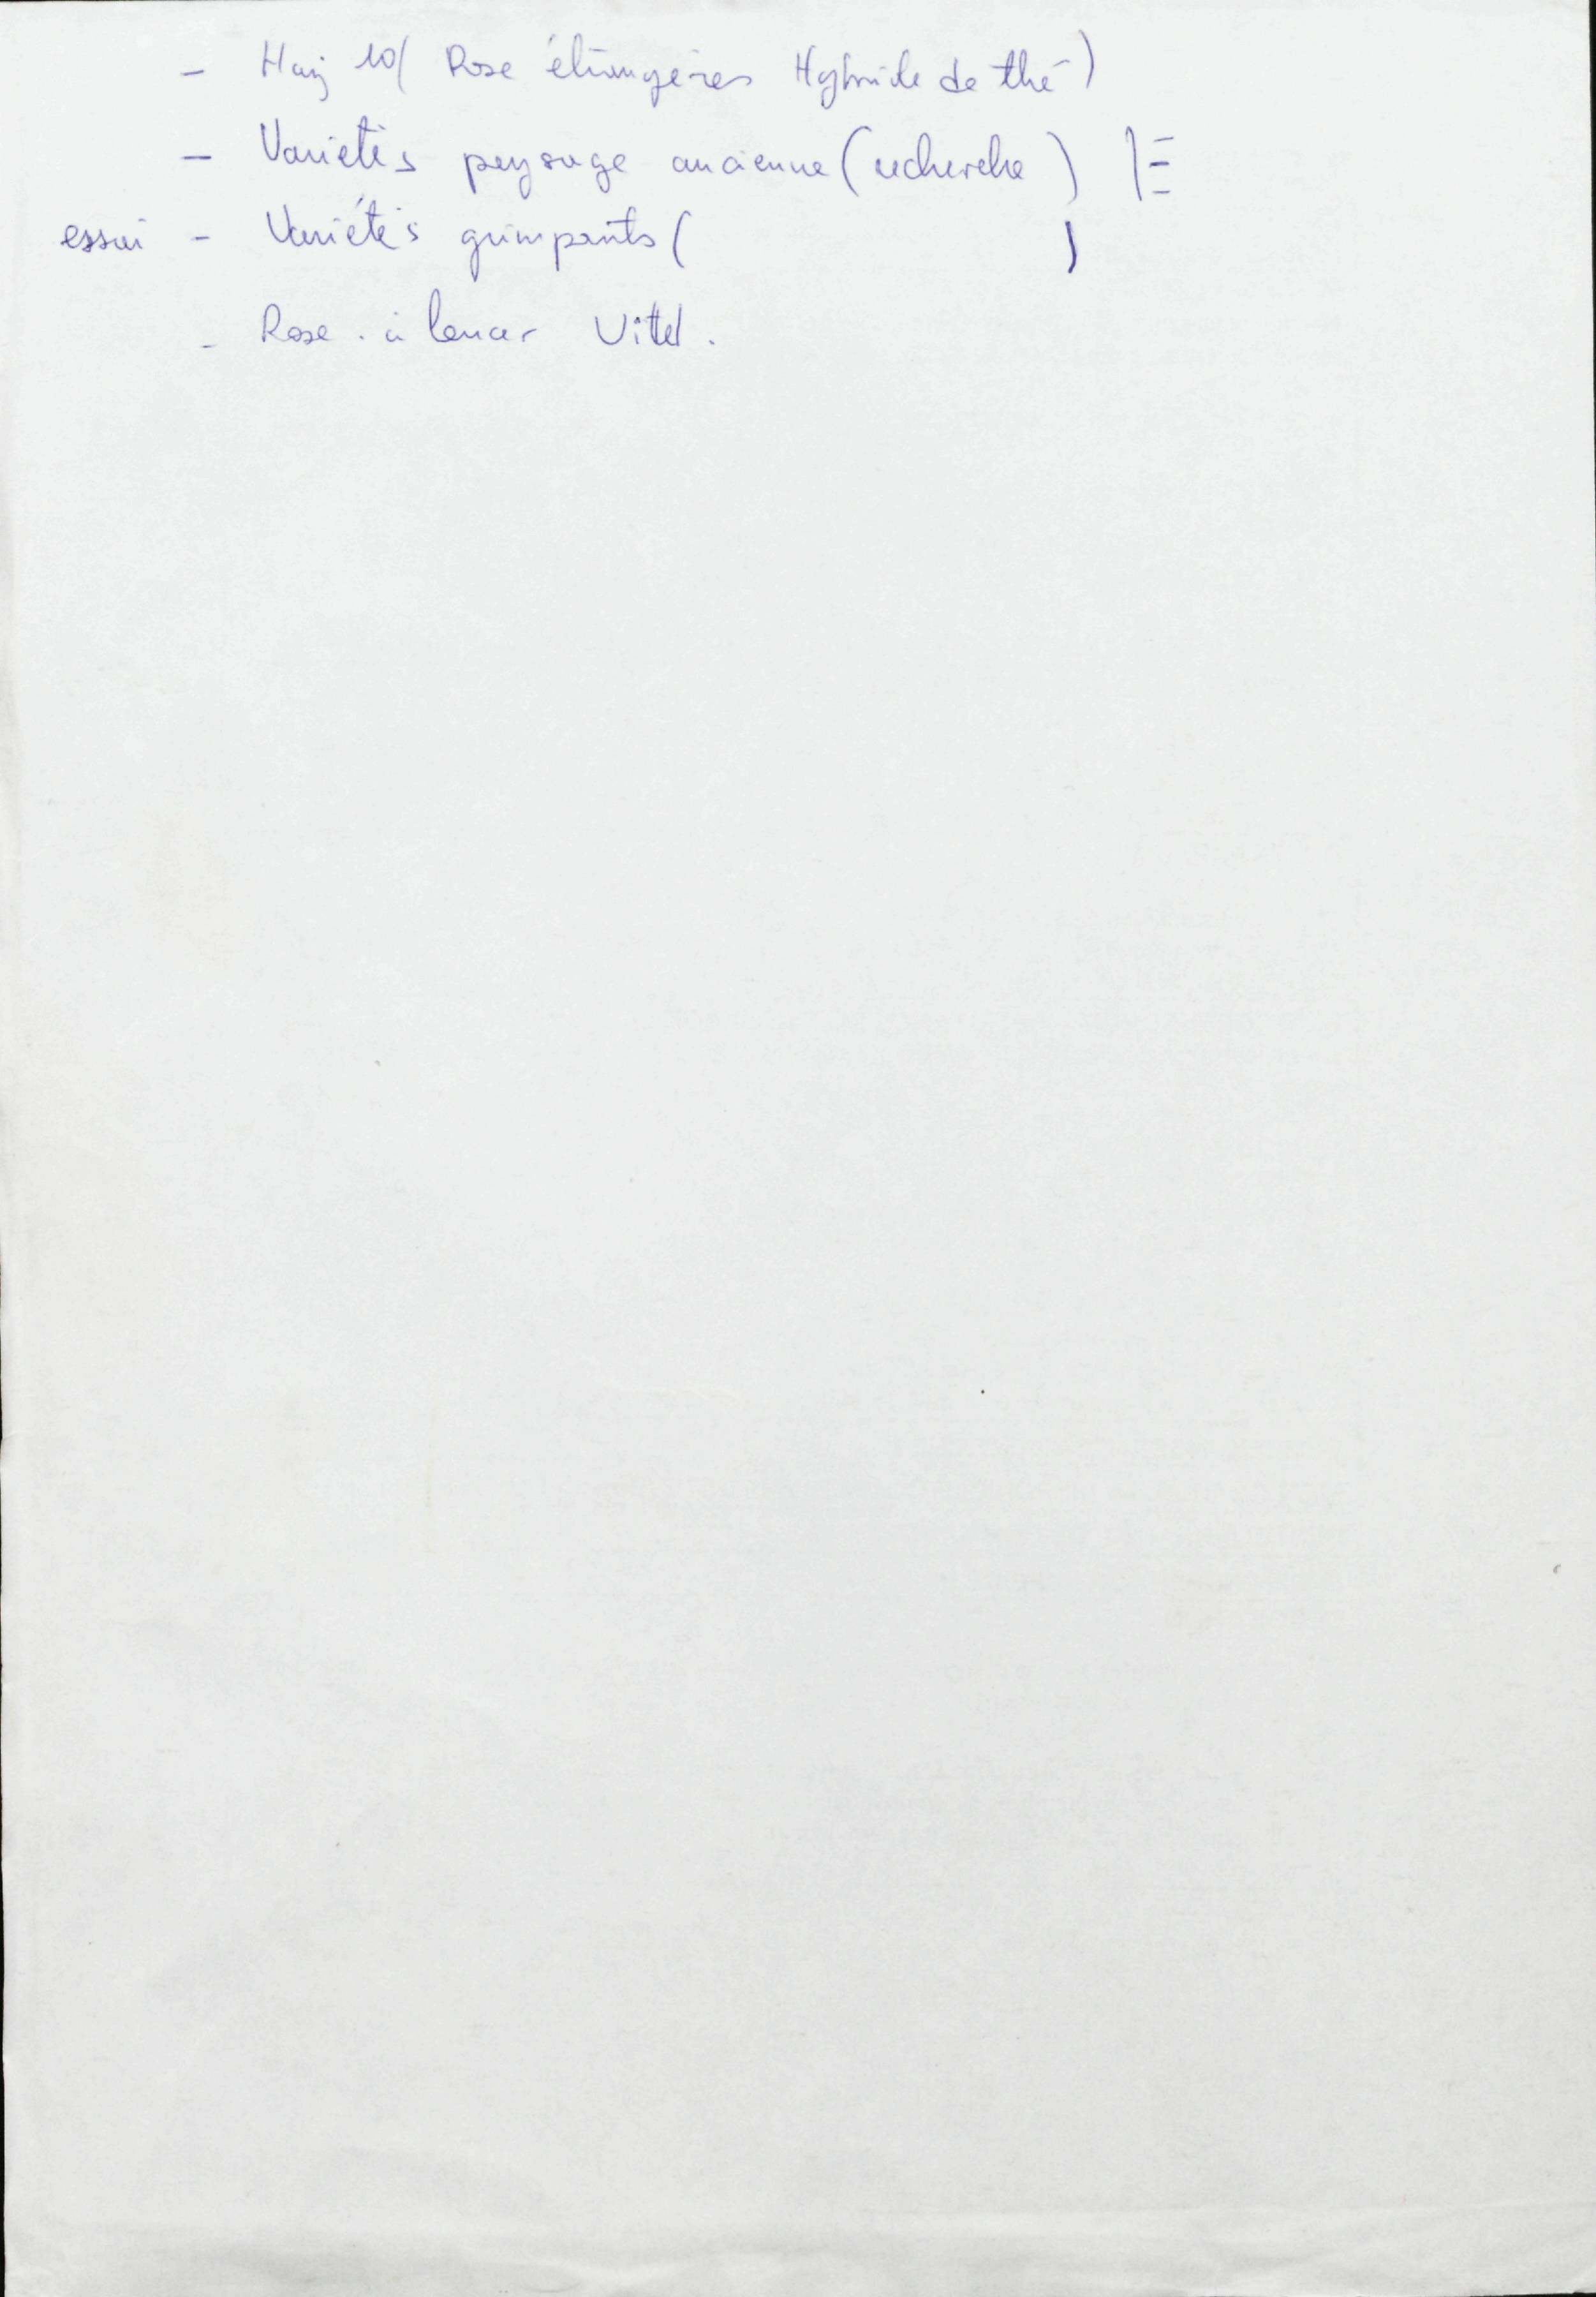 - Haij 10 ( Rose étrangères Hybride de thé )
- Variétés paysage ancienne ( recherche )
essai - Variétés grimpants ( )
- Rose à lancer Vittel.